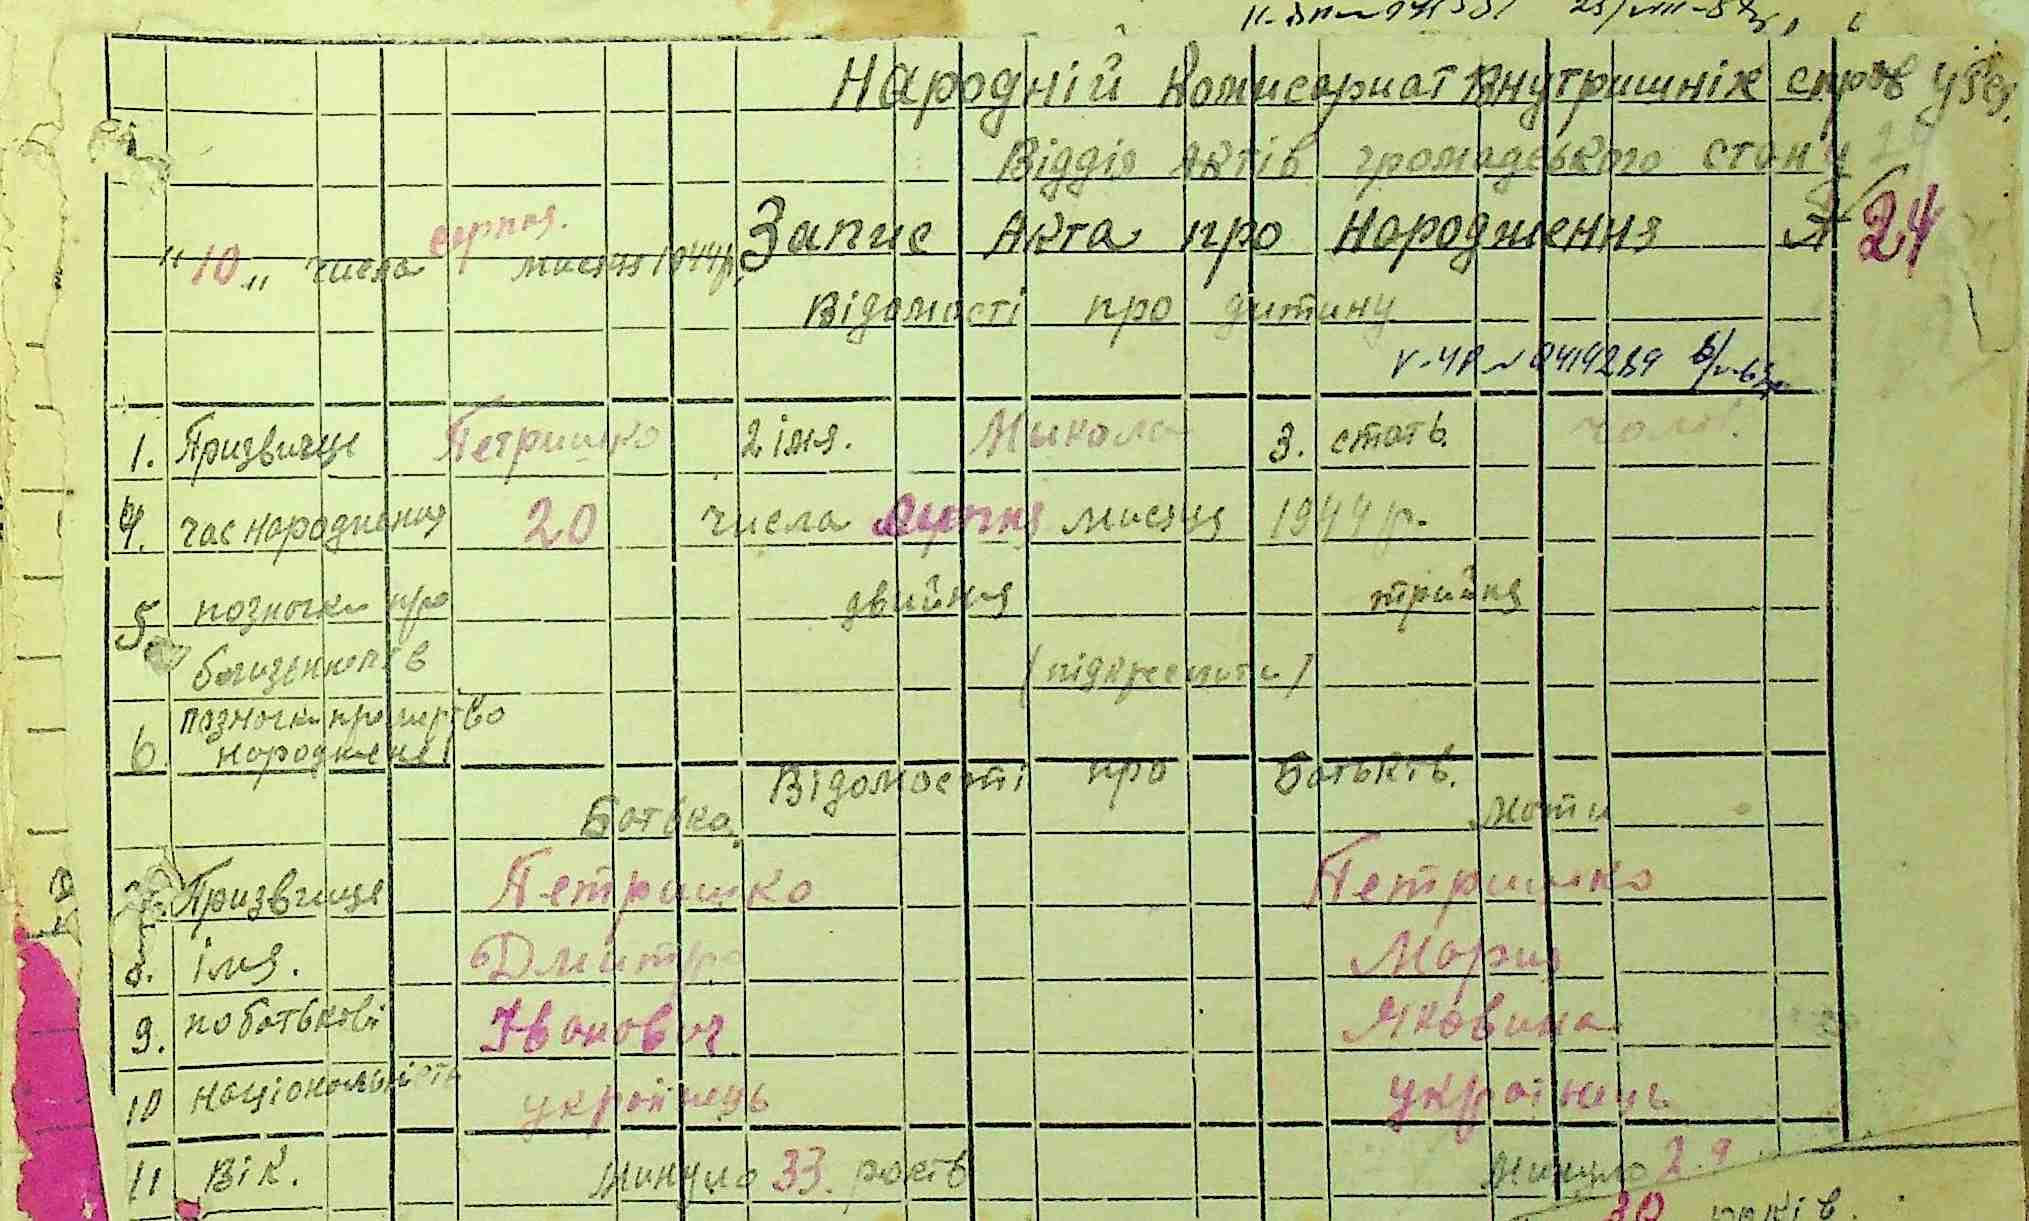 Народній Комисариат Внутришніх справ УРСР.
Відділ Актів громадського стану
Запис Акта про Народження № 24
"10" числа серпня місяця 1944 р.
Відомості про дитину
V-ЧР № 0419289
1. Призвище Петришко 2 імя. Микола 3. стать. чолов.
4. час народження 20 числа серпня місяця 1944 р.
5. позночки про двийня трийня
близнюків (підкреслити)
6. позночки про мертво
народжене
Відомості про батьків.
Батько. Моти
7. Призвище Петришко Петришко
8. імя. Дмитро Мария
9. по батькові Іванович Яковина
10 національність україниць українець
11 Вік. минуло 33 років минуло 29
30 років.